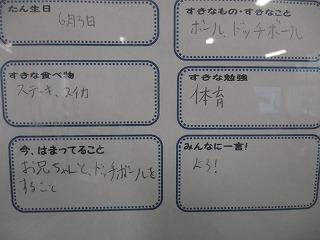 たん生日
6月3日
すきなもの・すきなこと
ボール、ドッチボール
すきな食べ物
ステーキ、スイカ
すきな勉強
体育
今、はまってること
お兄ちゃんと、ドッチボールを
すること
みんなに一言!
よろ!